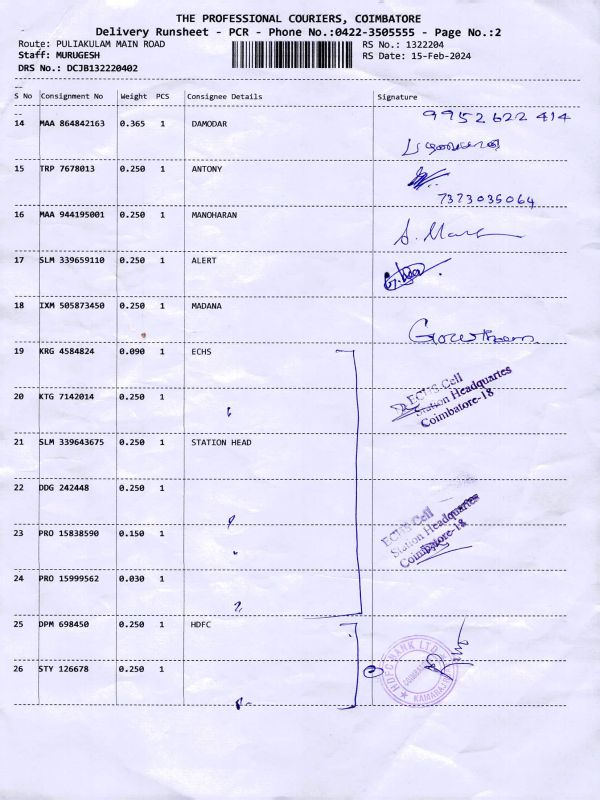 THE PROFESSIONAL COURIERS, COIMBATORE
Delivery Runsheet - PCR - Phone No.:0422-3505555 - Page No.:2
Route: PULIAKULAM MAIN ROAD RS No.: 1322204
Staff: MURUGESH RS Date: 15-Feb-2024
DRS No.: DCJB132220402
S No Consignment No Weight PCS Consignee Details Signature
9952622 414
14 MAA 864842163 0.365 1 DAMODAR
15 TRP 7678013 0.250 1 ANTONY
7373035064
16 MAA 944195001 0.250 1 MANOHARAN
17 SLM 339659110 0.250 1 ALERT
18 IXM 505873450 0.250 1 MADANA
Gowtham
19 KRG 4584824 0.090 1 ECHS
ECHS Cell
Station Headquartes
Coimbatore-18
20 KTG 7142014 0.250 1
21 SLM 339643675 0.250 1 STATION HEAD
22 DDG 242448 0.250 1
ECHS Cell
Station Headquartes
Coimbatore-18
23 PRO 15838590 0.150 1
24 PRO 15999562 0.030 1
25 DPM 698450 0.250 1 HDFC
HDFC BANK LTD
26 STY 126678 0.250 1